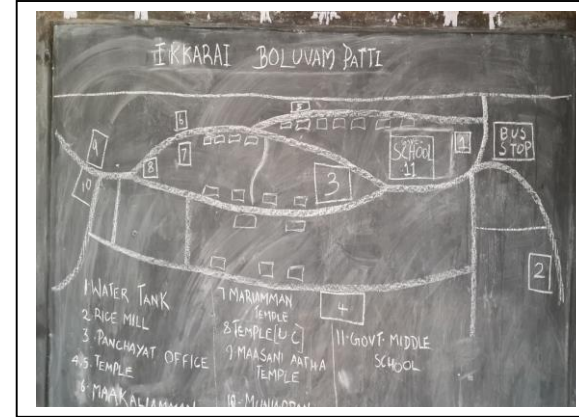 IKKARAI BOLUVAM PATTI
5
6
7
8
9
10
3
SCHOOL
11
1
BUS
STOP
2
4
1 WATER TANK
2 RICE MILL
3. PANCHAYAT OFFICE
4,5. TEMPLE
7 MARIAMMAN
TEMPLE
8 TEMPLE (U C)
9 MAASANI AATHA
TEMPLE
11-GOVT. MIDDLE
SCHOOL